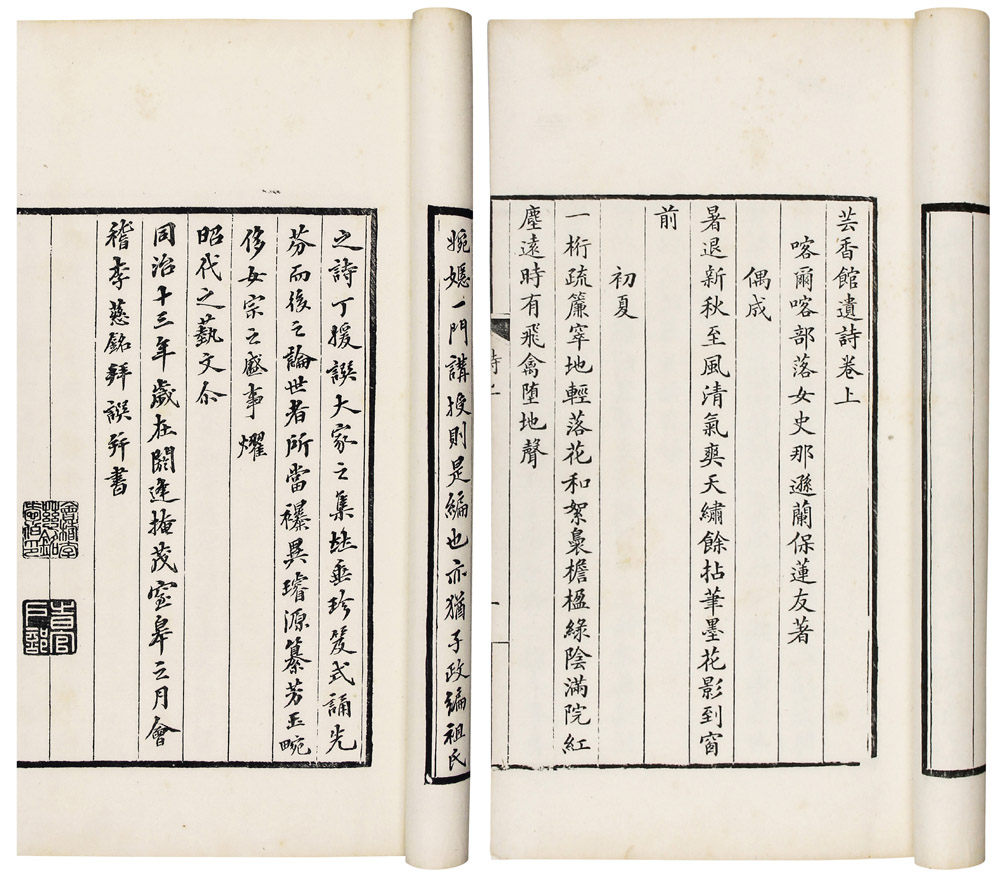 芸香館遺詩卷上
喀爾喀部落女史那遜蘭保蓮友著
偶成
暑退新秋至風清氣爽天繡餘拈筆墨花影到窗
前
初夏
一桁疏簾窣地輕落花和絮裊檐楹綠陰滿院紅
塵遠時有飛禽墮地聲
詩上
一
婉嫕一門講授則是編也亦猶子政編祖氏
之詩丁援譔大家之集竝垂珍笈式誦先
芬而後之論世者所當襮異璿源纂芳玉畹
侈女宗之盛事燿
昭代之藝文尒
同治十三年歲在閼逢掩茂窒皋之月會
稽李慈銘拜譔并書
會稽李
慈銘